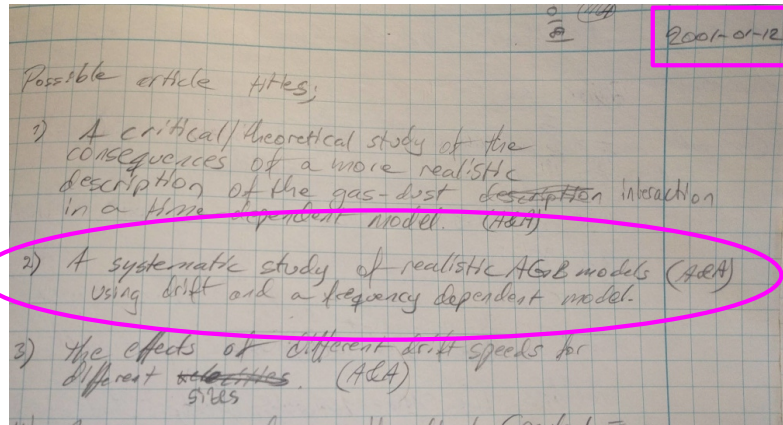 2001-01-12
Possible article titles;
1) A critical/theoretical study of the
consequences of a more realistic
description of the gas-dust description interaction
in a time dependent model. (A&A)
2) A systematic study of realistic AGB models (A&A)
using drift and a frequency dependent model.
3) The effects of different drift speeds for
different velocities. (A&A)
sizes